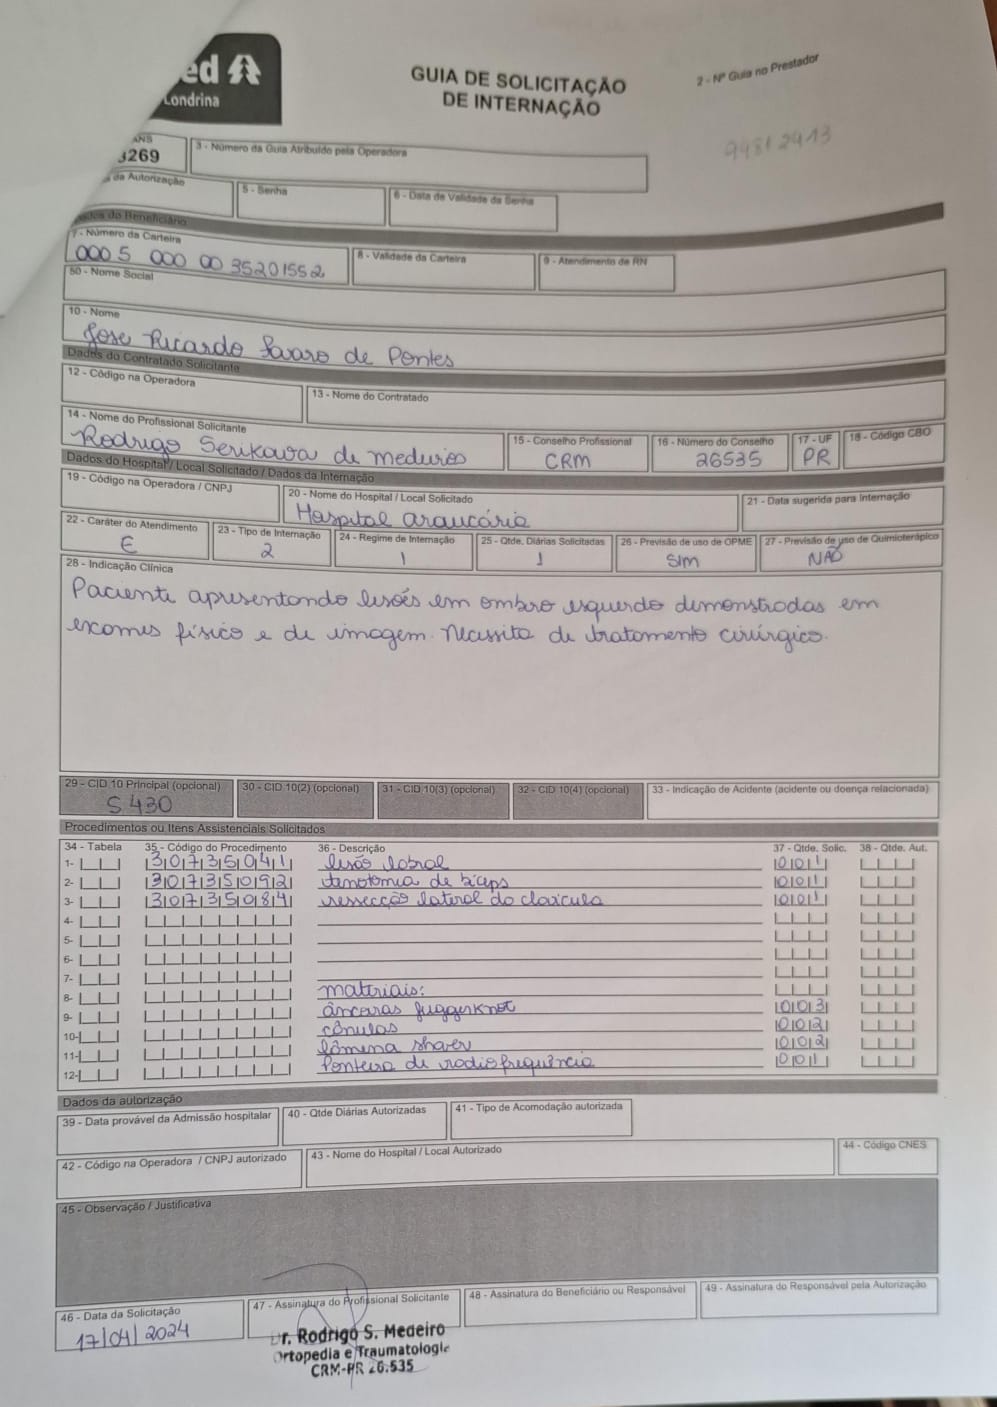 ed
Londrina
GUIA DE SOLICITAÇÃO
DE INTERNAÇÃO
2 - Nº Guia no Prestador
94812413
ANS
3269
3 - Número da Guia Atribuído pela Operadora
da Autorização
5 - Senha
6 - Data de Validade da Senha
Dados do Beneficiário
7 - Número da Carteira
0005 000 00 35201552
8 - Validade da Carteira
9 - Atendimento de RN
50 - Nome Social
10 - Nome
Jose Ricardo Favaro de Pontes
Dados do Contratado Solicitante
12 - Código na Operadora
13 - Nome do Contratado
14 - Nome do Profissional Solicitante
Rodrigo Serikawa de medeiros
15 - Conselho Profissional
CRM
16 - Número do Conselho
26535
17 - UF
PR
18 - Código CBO
Dados do Hospital / Local Solicitado / Dados da Internação
19 - Código na Operadora / CNPJ
20 - Nome do Hospital / Local Solicitado
Hospital araucária
21 - Data sugerida para Internação
22 - Caráter do Atendimento
E
23 - Tipo de Internação
2
24 - Regime de Internação
1
25 - Qtde. Diárias Solicitadas
1
26 - Previsão de uso de OPME
SIM
27 - Previsão de uso de Quimioterápico
NÃO
28 - Indicação Clínica
Paciente apresentando lesões em ombro esquerdo demonstradas em
exames físico e de imagem. Necessita de tratamento cirúrgico.
29 - CID 10 Principal (opcional)
S430
30 - CID 10(2) (opcional)
31 - CID 10(3) (opcional)
32 - CID 10(4) (opcional)
33 - Indicação de Acidente (acidente ou doença relacionada)
Procedimentos ou Itens Assistenciais Solicitados
34 - Tabela 35 - Código do Procedimento 36 - Descrição 37 - Qtde. Solic. 38 - Qtde. Aut.
1- 30735041 lesão labral 001
2- 30735092 tenotomia de bíceps 001
3- 30735084 ressecção lateral da clavicula 001
4-
5-
6-
7-
8- materiais:
9- âncoras juggerknot 003
10- cânulas 002
11- lâmina shaver 002
12- Ponteira de radiofrequência 001
Dados da autorização
39 - Data provável da Admissão hospitalar
40 - Qtde Diárias Autorizadas
41 - Tipo de Acomodação autorizada
42 - Código na Operadora / CNPJ autorizado
43 - Nome do Hospital / Local Autorizado
44 - Código CNES
45 - Observação / Justificativa
46 - Data da Solicitação
17/04/2024
47 - Assinatura do Profissional Solicitante
48 - Assinatura do Beneficiário ou Responsável
49 - Assinatura do Responsável pela Autorização
Dr. Rodrigo S. Medeiro
Ortopedia e Traumatologia
CRM-PR 26.535